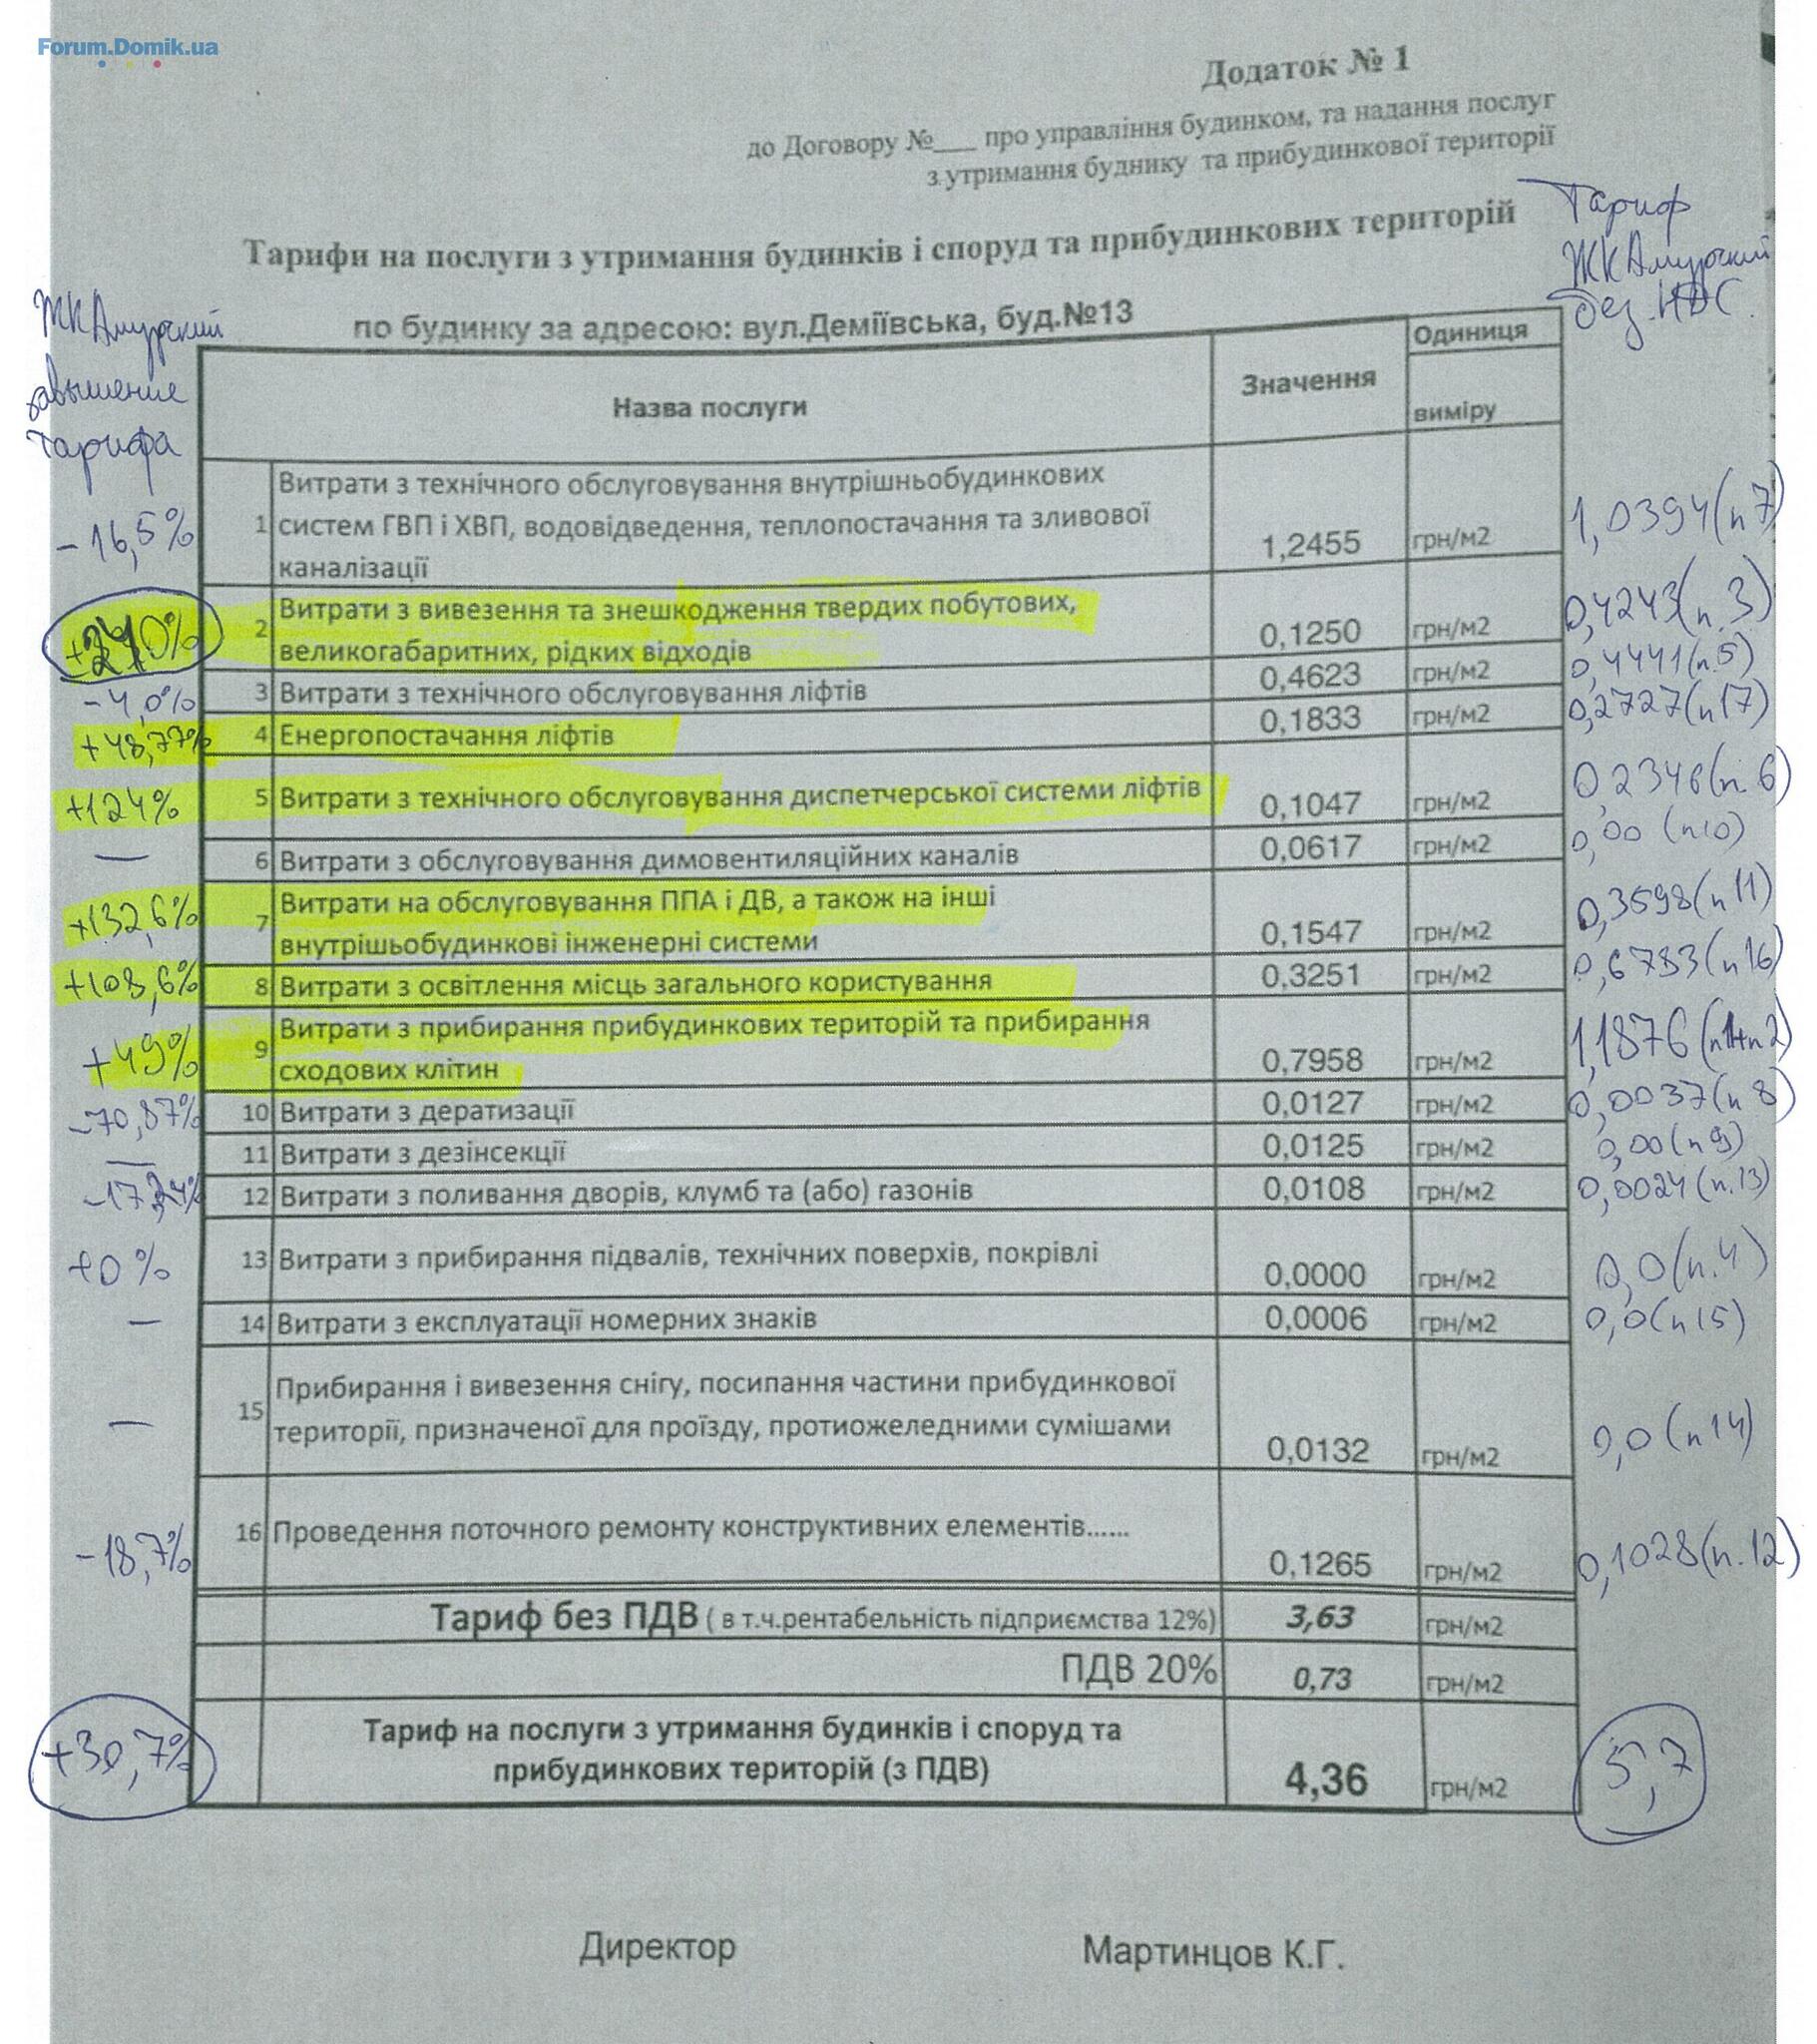 Forum.Domik.ua
Додаток № 1
до Договору №___ про управління будинком, та надання послуг
з утримання буднику та прибудинкової території
Тарифи на послуги з утримання будинків і споруд та прибудинкових територій
по будинку за адресою: вул.Деміївська, буд.№13
Тариф
ЖК Амурский
без НДС.
ЖК Амурский
завышение
тарифа
Назва послуги Значення Одиниця
виміру
Витрати з технічного обслуговування внутрішньобудинкових
-16,5% 1 систем ГВП і ХВП, водовідведення, теплопостачання та зливової 1,2455 грн/м2 1,0394(п7)
каналізації
2 Витрати з вивезення та знешкодження твердих побутових,
великогабаритних, рідких відходів 0,1250 грн/м2 0,4243(п.3)
-4,0% 3 Витрати з технічного обслуговування ліфтів 0,4623 грн/м2 0,4441(п.5)
+48,77% 4 Енергопостачання ліфтів 0,1833 грн/м2 0,2727(п17)
+124% 5 Витрати з технічного обслуговування диспетчерської системи ліфтів 0,1047 грн/м2 0,2346(п.6)
— 6 Витрати з обслуговування димовентиляційних каналів 0,0617 грн/м2 0,00 (п10)
+132,6% 7 Витрати на обслуговування ППА і ДВ, а також на інші
внутрішьобудинкові інженерні системи 0,1547 грн/м2 0,3598(п11)
+108,6% 8 Витрати з освітлення місць загального користування 0,3251 грн/м2 0,6783(п16)
+49% 9 Витрати з прибирання прибудинкових територій та прибирання
сходових клітин 0,7958 грн/м2 1,1876(п1+п2)
-70,87% 10 Витрати з дератизації 0,0127 грн/м2 0,0037(п8)
— 11 Витрати з дезінсекції 0,0125 грн/м2 0,00(п9)
12 Витрати з поливання дворів, клумб та (або) газонів 0,0108 грн/м2 0,0024(п.13)
+0% 13 Витрати з прибирання підвалів, технічних поверхів, покрівлі 0,0000 грн/м2 0,0(п.4)
— 14 Витрати з експлуатації номерних знаків 0,0006 грн/м2 0,0(п15)
— 15 Прибирання і вивезення снігу, посипання частини прибудинкової
території, призначеної для проїзду, протиожеледними сумішами 0,0132 грн/м2 0,0(п14)
-18,7% 16 Проведення поточного ремонту конструктивних елементів...... 0,1265 грн/м2 0,1028(п.12)
Тариф без ПДВ ( в т.ч.рентабельність підприємства 12%) 3,63 грн/м2
ПДВ 20% 0,73 грн/м2
+30,7% Тариф на послуги з утримання будинків і споруд та
прибудинкових територій (з ПДВ) 4,36 грн/м2 5,7
Директор Мартинцов К.Г.